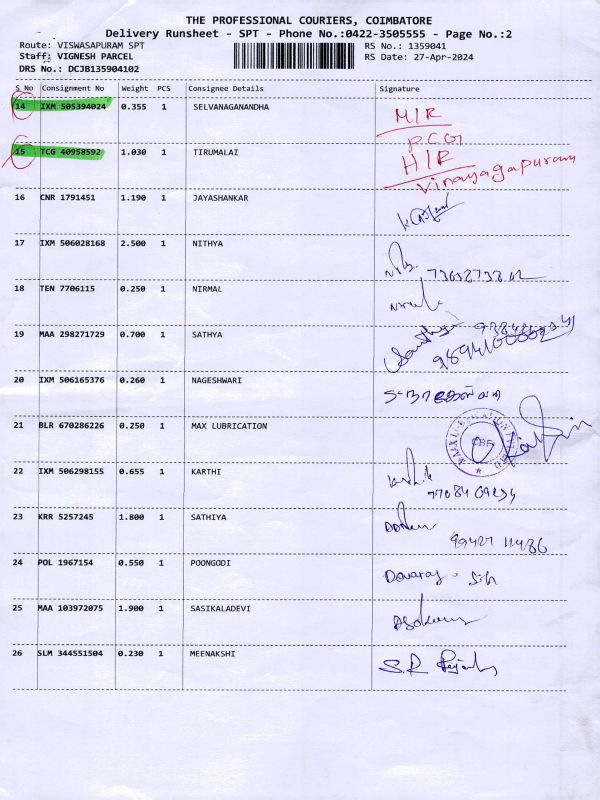 THE PROFESSIONAL COURIERS, COIMBATORE
Delivery Runsheet - SPT - Phone No.:0422-3505555 - Page No.:2
Route: VISWASAPURAM SPT
RS No.: 1359041
Staff: VIGNESH PARCEL
RS Date: 27-Apr-2024
DRS No.: DCJB135904102
S No Consignment No Weight PCS Consignee Details Signature
14 IXM 505394024 0.355 1 SELVANAGANANDHA
PCG
15 TCG 40958592 1.030 1 TIRUMALAI H/R
Vinayagapuram
16 CNR 1791451 1.190 1 JAYASHANKAR
17 IXM 506028168 2.500 1 NITHYA
18 TEN 7706115 0.250 1 NIRMAL
19 MAA 298271729 0.700 1 SATHYA
20 IXM 506165376 0.260 1 NAGESHWARI
21 BLR 670286226 0.250 1 MAX LUBRICATION
CBE
22 IXM 506298155 0.655 1 KARTHI
23 KRR 5257245 1.800 1 SATHIYA
24 POL 1967154 0.550 1 POONGODI
25 MAA 103972075 1.900 1 SASIKALADEVI
26 SLM 344551504 0.230 1 MEENAKSHI S.R